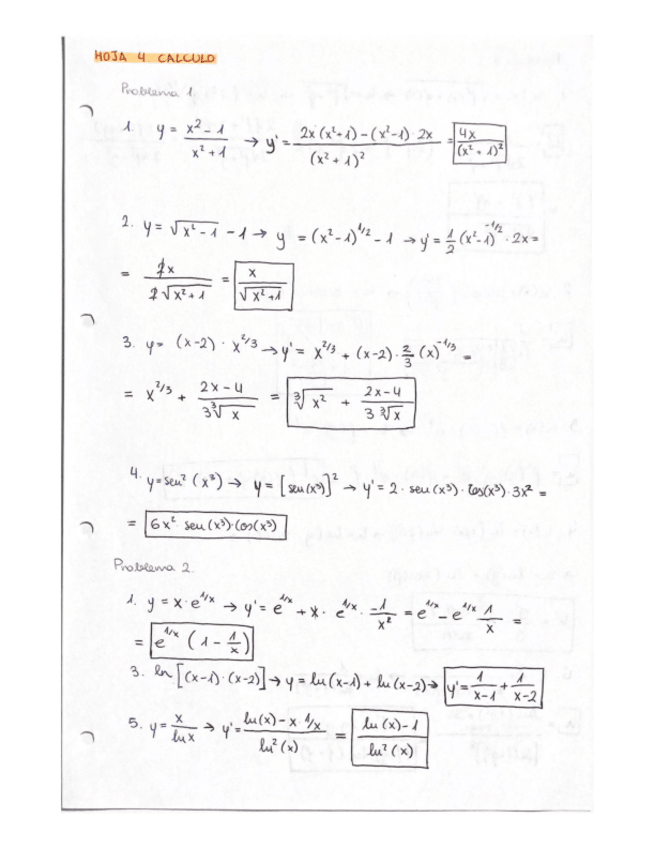 HOJA 4. CALCULO
Problema 1.
1. y = x² - 1 / x² + 1 → y' = 2x (x²+1) - (x²-1)·2x / (x² + 1)² = 4x / (x² + 1)²
2. y = √x² - 1 - 1 → y = (x²-1)^1/2 - 1 → y' = 1/2 (x²-1)^-1/2 · 2x =
= 2x / 2√x²+1 = x / √x²+1
3. y = (x-2) · x^2/3 → y' = x^2/3 + (x-2) · 2/3 (x)^-1/3 =
= x^2/3 + 2x-4 / 3∛x = ∛x² + 2x-4 / 3∛x
4. y = sen² (x³) → y = [sen(x³)]² → y' = 2 · sen(x³) · cos(x³) · 3x² =
= 6x² · sen(x³)·cos(x³)
Problema 2.
1. y = x·e^1/x → y' = e^1/x + x · e^1/x · -1/x² = e^1/x - e^1/x 1/x =
= e^1/x (1 - 1/x)
3. ln [(x-1)·(x-2)] → y = ln(x-1) + ln(x-2) → y' = 1/x-1 + 1/x-2
5. y = x / ln x → y' = ln(x) - x · 1/x / ln²(x) = ln(x) - 1 / ln²(x)